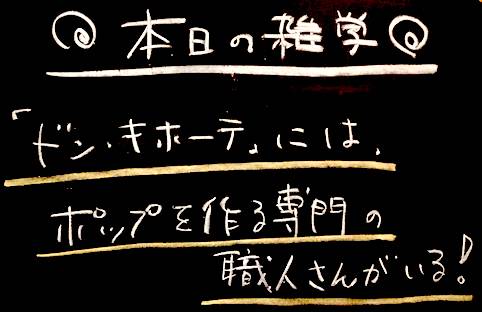 本日の雑学
「ドン・キホーテ」には、
ポップを作る専門の
職人さんがいる!